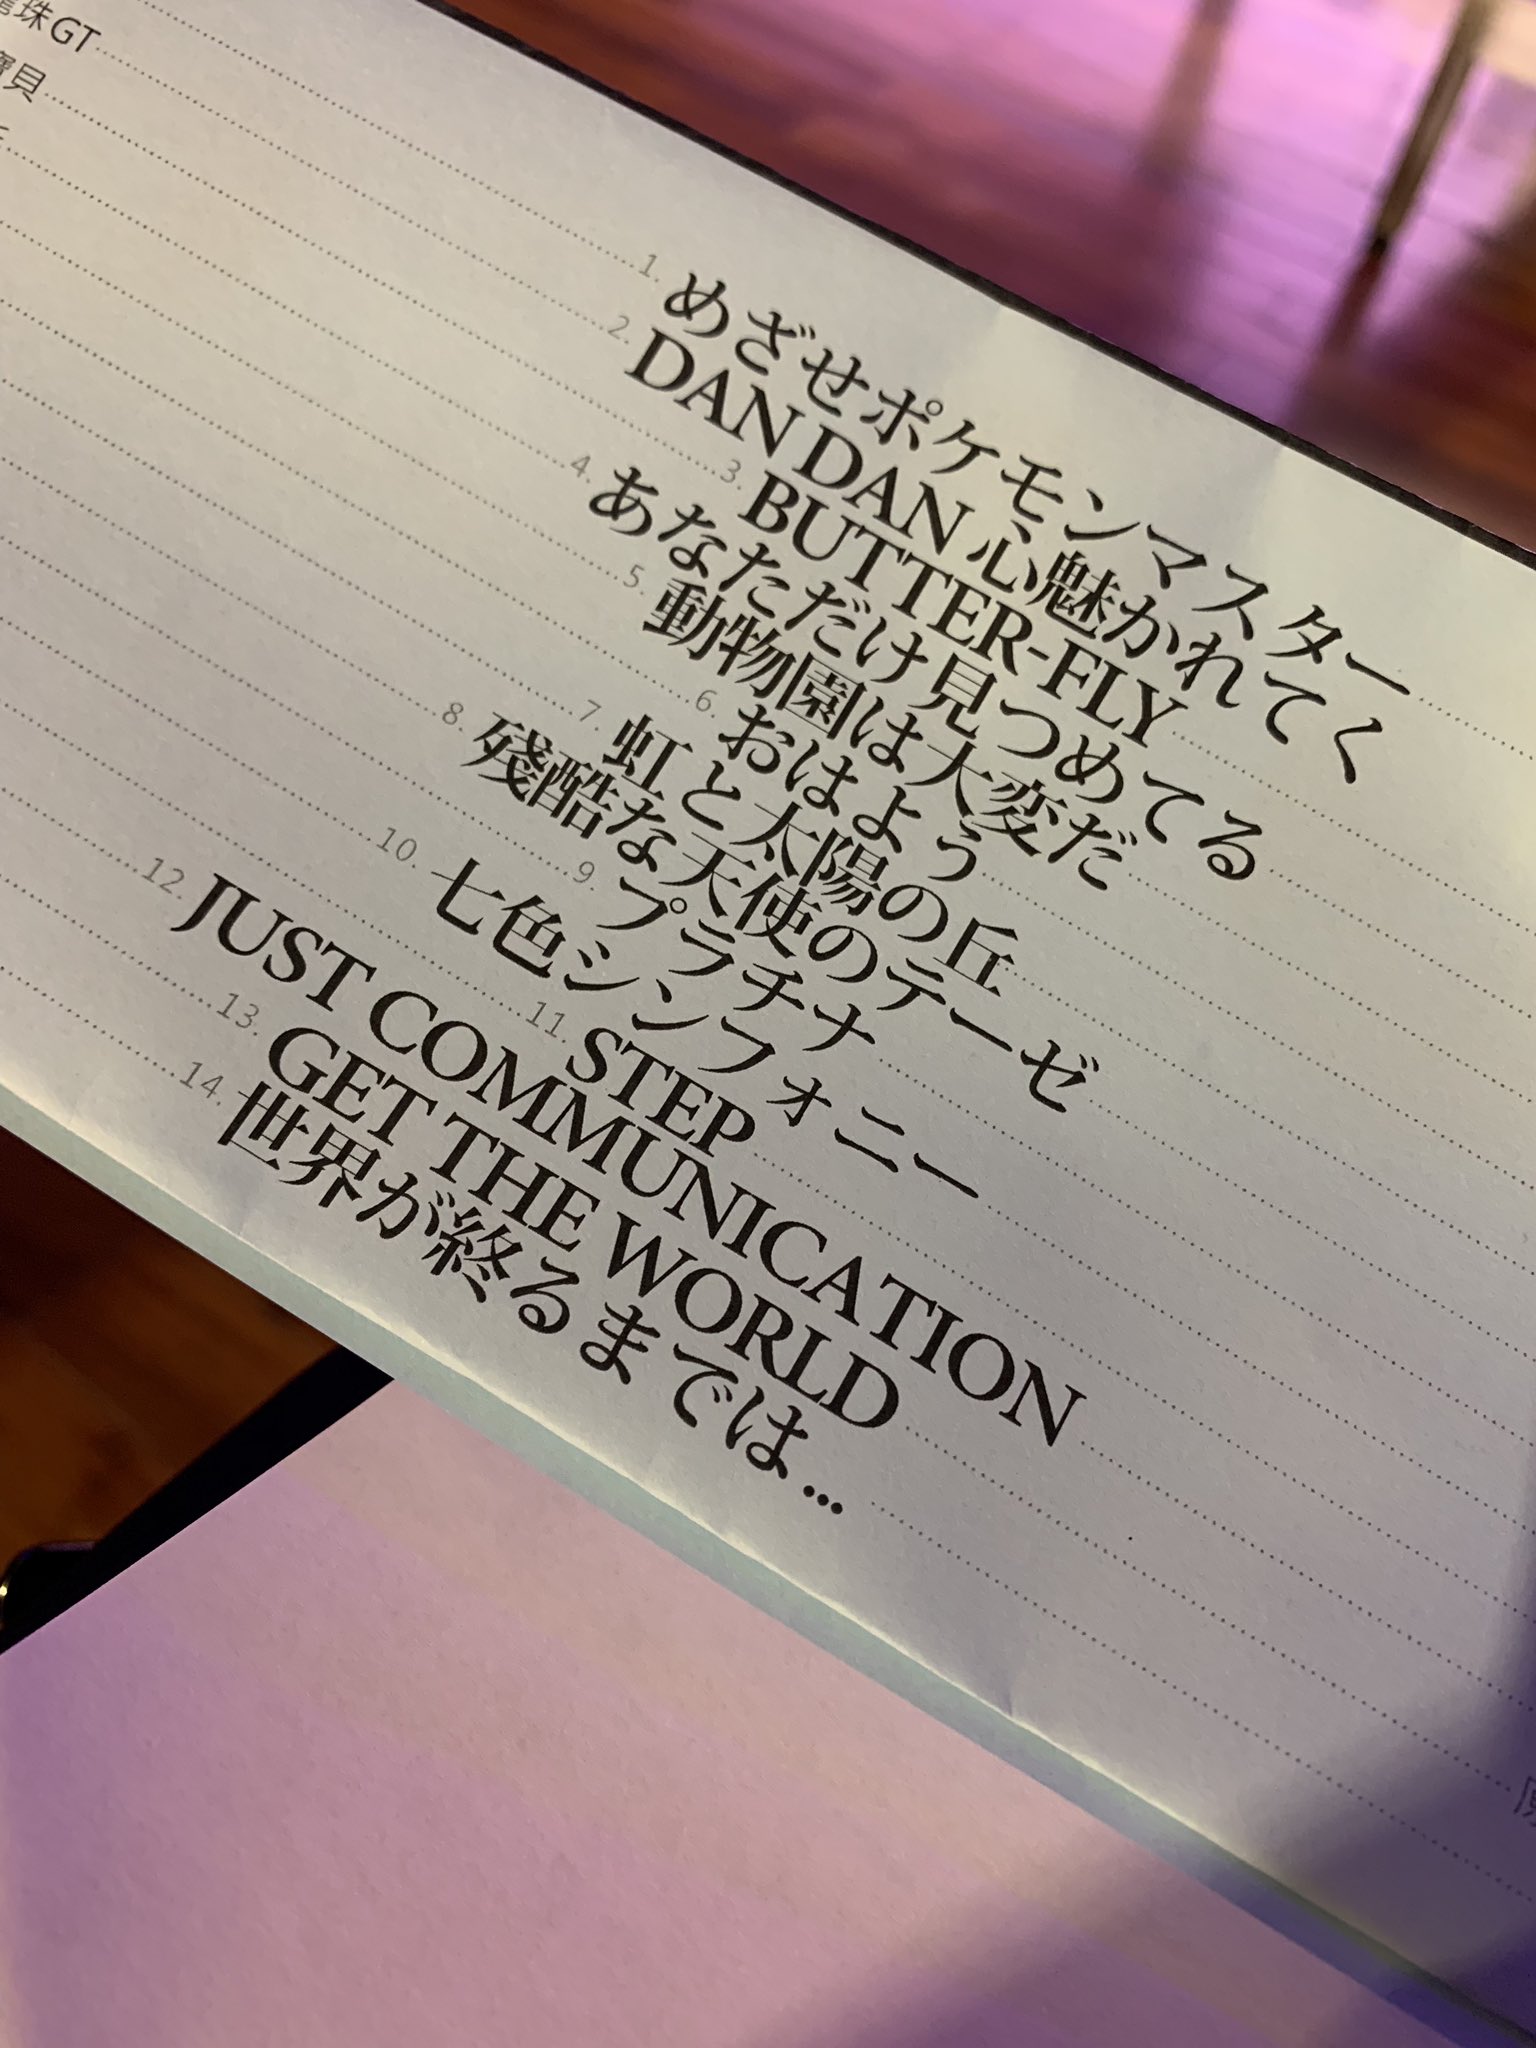 珠GT
寶貝
1. めざせポケモンマスター
2. DAN DAN 心魅かれてく
3. BUTTER-FLY
4. あなただけ見つめてる
5. 動物園は大変だ
6. おはよう
7. 虹と太陽の丘
8. 殘酷な天使のテーゼ
9. プラチナ
10. 七色シンフォニー
11. STEP
12. JUST COMMUNICATION
13. GET THE WORLD
14. 世界が終るまでは...